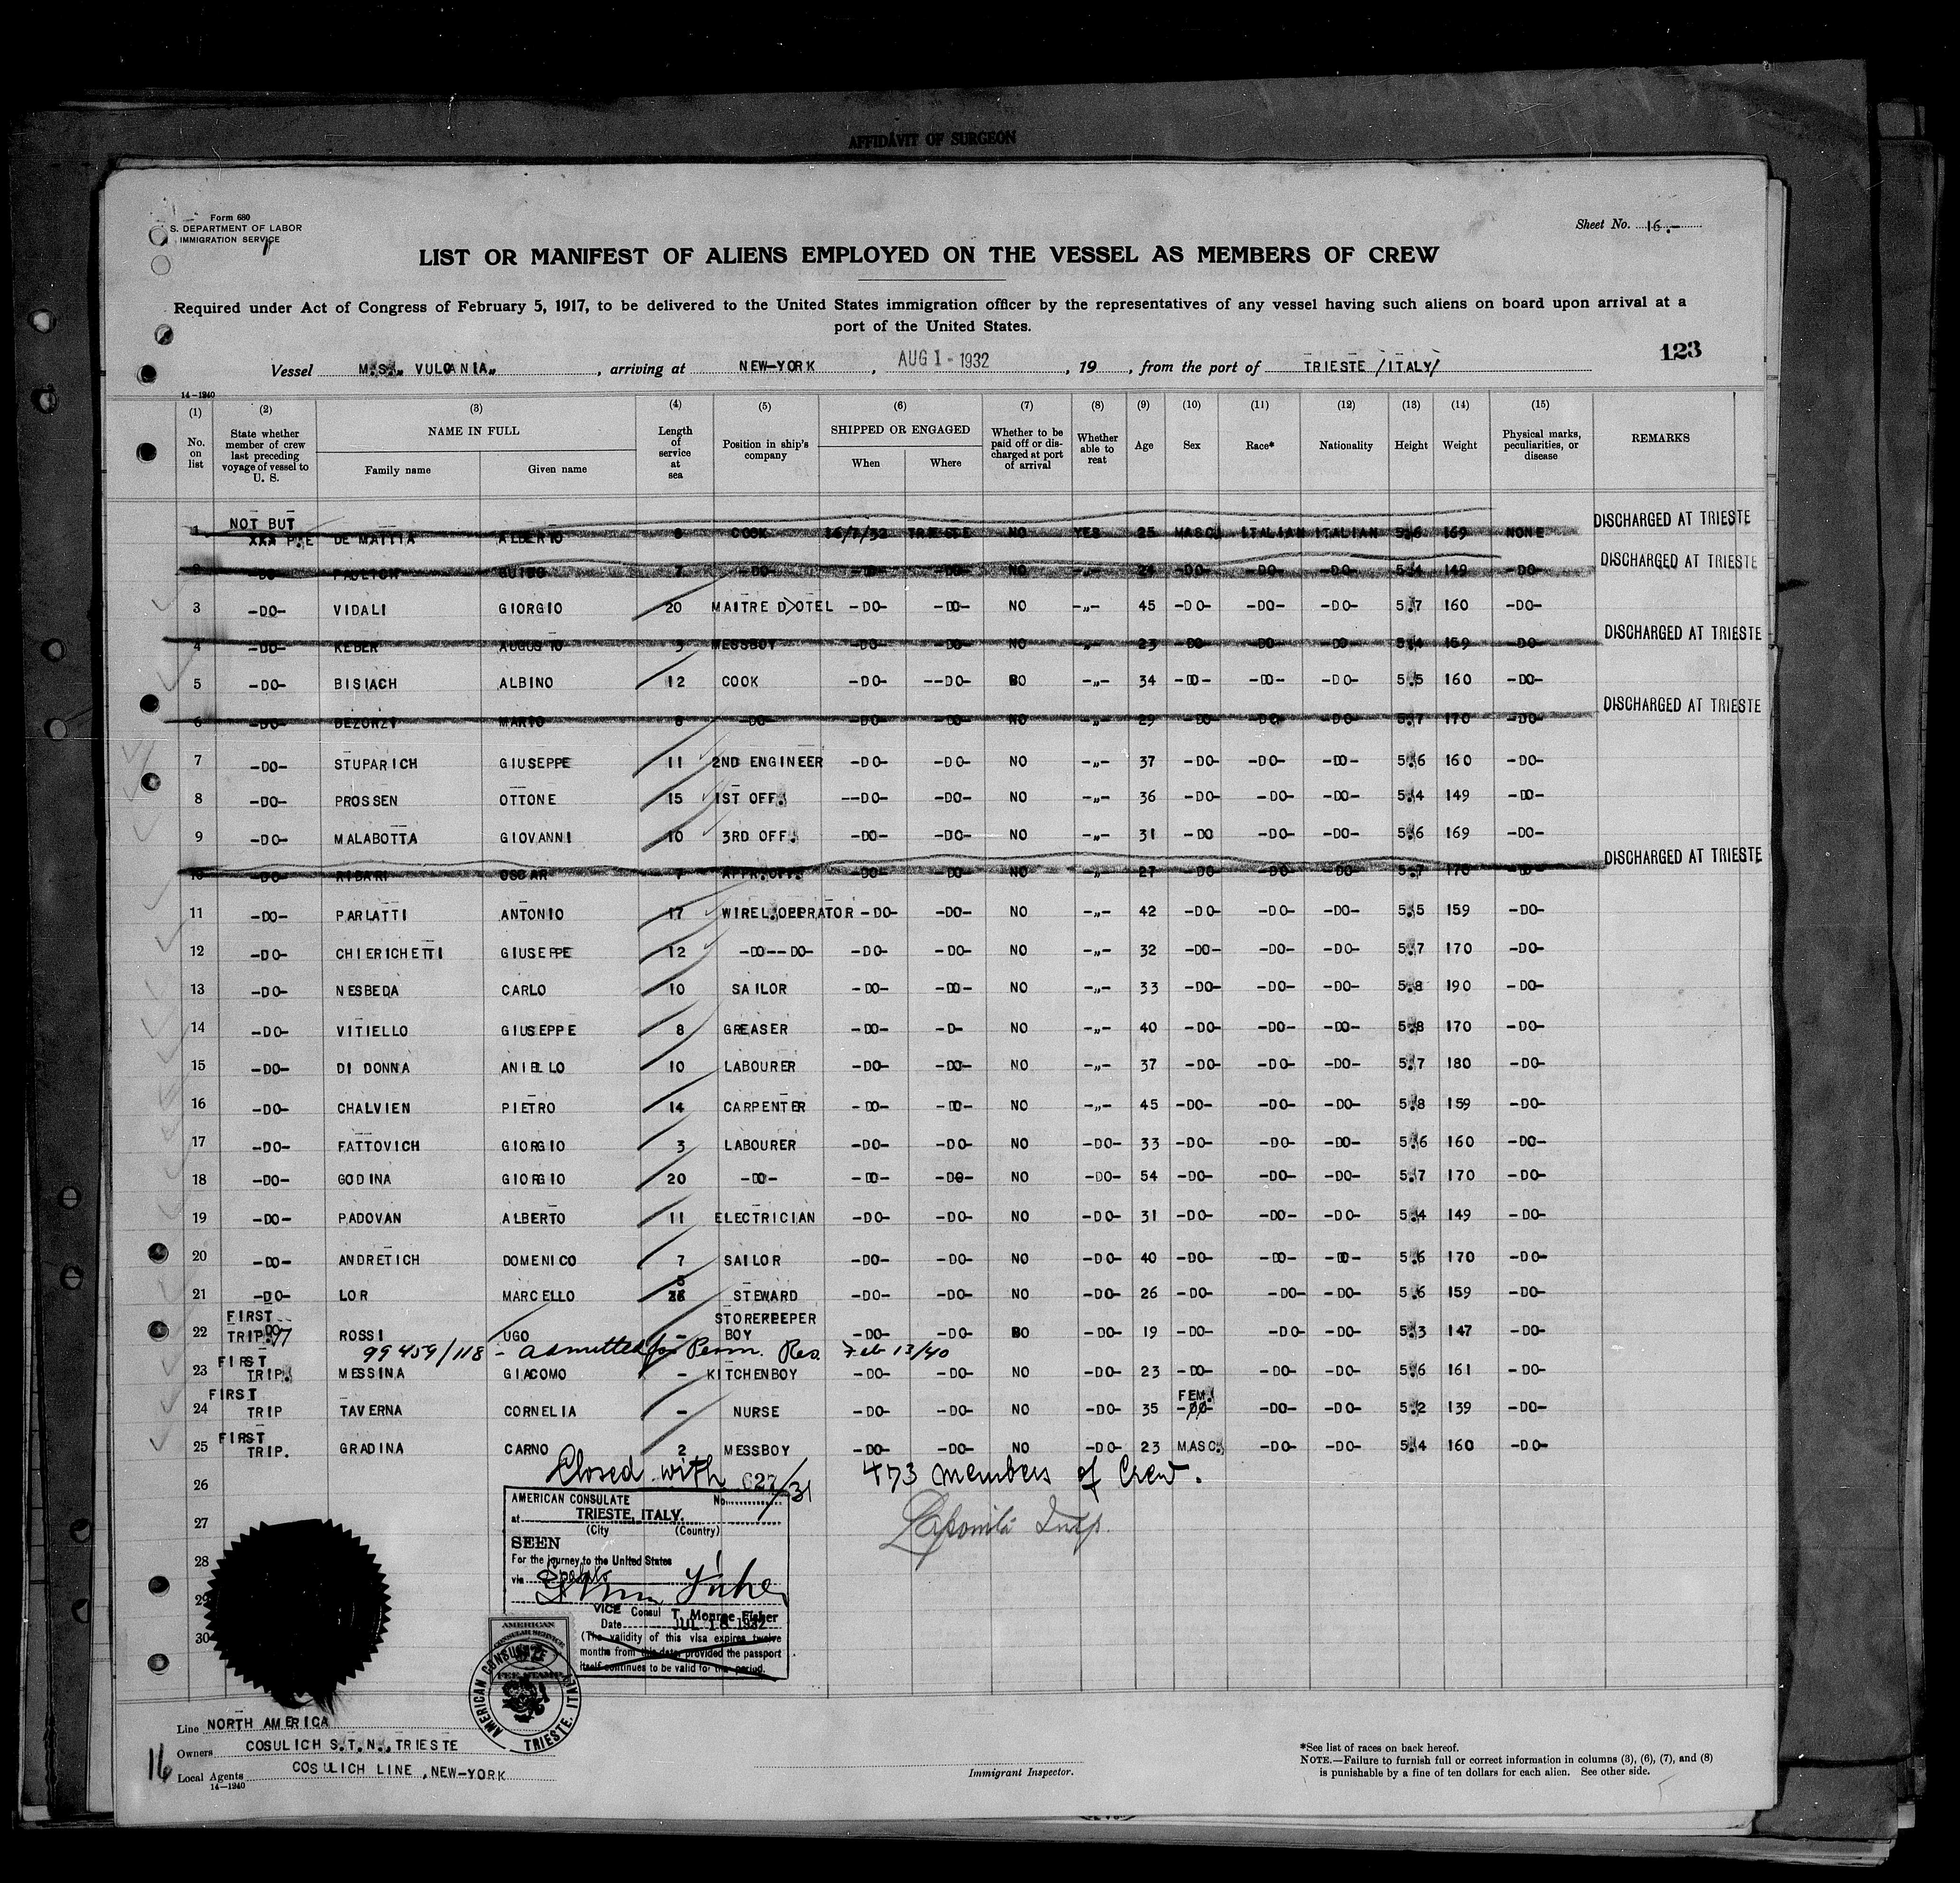 AFFIDAVIT OF SURGEON
Form 680
S. DEPARTMENT OF LABOR
IMMIGRATION SERVICE
Sheet No. 16.-
LIST OR MANIFEST OF ALIENS EMPLOYED ON THE VESSEL AS MEMBERS OF CREW
Required under Act of Congress of February 5, 1917, to be delivered to the United States immigration officer by the representatives of any vessel having such aliens on board upon arrival at a
port of the United States.
123
Vessel M.S. „ VULCANIA„ , arriving at NEW-YORK , AUG 1 - 1932 , 19 , from the port of TRIESTE /ITALY/
14-1240
(1) (2) (3) (4) (5) (6) (7) (8) (9) (10) (11) (12) (13) (14) (15)
No. on list State whether member of crew last preceding voyage of vessel to U. S. NAME IN FULL Family name Given name Length of service at sea Position in ship's company SHIPPED OR ENGAGED When Where Whether to be paid off or discharged at port of arrival Whether able to reat Age Sex Race* Nationality Height Weight Physical marks, peculiarities, or disease REMARKS
1 NOT BUT P.E DE MATTIA ALBERTO 8 COOK 16/7/32 TRIESTE NO YES 25 MASC. ITALIAN ITALIAN 5.6 169 NONE DISCHARGED AT TRIESTE
2 -DO- GUIDO 7 -DO- -DO- -DO- NO -„- 24 -DO- -DO- -DO- 5.4 149 -DO- DISCHARGED AT TRIESTE
3 -DO- VIDALI GIORGIO 20 MAITRE D'OTEL -DO- -DO- NO -„- 45 -DO- -DO- -DO- 5.7 160 -DO-
4 -DO- KEBER AUGUSTO 3 MESSBOY -DO- -DO- NO -„- 23 -DO- -DO- -DO- 5.4 159 -DO- DISCHARGED AT TRIESTE
5 -DO- BISIACH ALBINO 12 COOK -DO- --DO- NO -„- 34 -DO- -DO- -DO- 5.5 160 -DO-
6 -DO- DEZORZI MARIO 8 -DO- -DO- -DO- NO -„- 29 -DO- -DO- -DO- 5.7 170 -DO- DISCHARGED AT TRIESTE
7 -DO- STUPARICH GIUSEPPE 11 2ND ENGINEER -DO- -DO- NO -„- 37 -DO- -DO- -DO- 5.6 160 -DO-
8 -DO- PROSSEN OTTONE 15 1ST OFF. --DO- -DO- NO -„- 36 -DO- -DO- -DO- 5.4 149 -DO-
9 -DO- MALABOTTA GIOVANNI 10 3RD OFF. -DO- -DO- NO -„- 31 -DO -DO- -DO- 5.6 169 -DO-
10 -DO- RIBARI OSCAR 7 APPR.OFF. -DO- -DO- NO -„- 27 -DO- -DO- -DO- 5.7 170 -DO- DISCHARGED AT TRIESTE
11 -DO- PARLATTI ANTONIO 17 WIREL.OEPRATOR -DO- -DO- NO -„- 42 -DO- -DO- -DO- 5.5 159 -DO-
12 -DO- CHIERICHETTI GIUSEPPE 12 -DO--DO- -DO- -DO- NO -„- 32 -DO- -DO- -DO- 5.7 170 -DO-
13 -DO- NESBEDA CARLO 10 SAILOR -DO- -DO- NO -„- 33 -DO- -DO- -DO- 5.8 190 -DO-
14 -DO- VITIELLO GIUSEPPE 8 GREASER -DO- -D- NO -„- 40 -DO- -DO- -DO- 5.8 170 -DO-
15 -DO- DI DONNA ANIELLO 10 LABOURER -DO- -DO- NO -„- 37 -DO- -DO- -DO- 5.7 180 -DO-
16 -DO- CHALVIEN PIETRO 14 CARPENTER -DO- -DO- NO -„- 45 -DO- -DO- -DO- 5.8 159 -DO-
17 -DO- FATTOVICH GIORGIO 3 LABOURER -DO- -DO- NO -DO- 33 -DO- -DO- -DO- 5.6 160 -DO-
18 -DO- GODINA GIORGIO 20 -DO- -DO- -DO- NO -DO- 54 -DO- -DO- -DO- 5.7 170 -DO-
19 -DO- PADOVAN ALBERTO 11 ELECTRICIAN -DO- -DO- NO -DO- 31 -DO- -DO- -DO- 5.4 149 -DO-
20 -DO- ANDRETICH DOMENICO 7 SAILOR -DO- -DO- NO -DO- 40 -DO- -DO- -DO- 5.6 170 -DO-
21 -DO- LOR MARCELLO 5 STEWARD -DO- -DO- NO -DO- 26 -DO- -DO- -DO- 5.6 159 -DO-
22 FIRST TRIP. ROSSI UGO - STOREKEEPER BOY -DO- -DO- NO -DO- 19 -DO- -DO- -DO- 5.3 147 -DO-
99454/118 - Admitted for Perm. Res. Feb 13/40
23 FIRST TRIP. MESSINA GIACOMO - KITCHENBOY -DO- -DO- NO -DO- 23 -DO- -DO- -DO- 5.6 161 -DO-
24 FIRST TRIP TAVERNA CORNELIA - NURSE -DO- -DO- NO -DO- 35 FEM. -DO- -DO- -DO- 5.2 139 -DO-
25 FIRST TRIP. GRADINA CARNO 2 MESSBOY -DO- -DO- NO -DO- 23 MASC. -DO- -DO- 5.4 160 -DO-
Closed with 473 members of Crew.
26
27
28
29
30
AMERICAN CONSULATE No. 627/31
at TRIESTE, ITALY.
(City (Country)
SEEN
For the journey to the United States
via
VICE Consul T. Monroe Fisher
Date JUL 18 1932
(The validity of this visa expires twelve
months from this date, provided the passport
itself continues to be valid for the period.
AMERICAN
CONSULAR SERVICE
FEE STAMP
AMERICAN CONSULATE TRIESTE, ITALY
Line NORTH AMERICA
Owners COSULICH S.T.N., TRIESTE
16
Local Agents COSULICH LINE ,NEW-YORK
14-1240
Immigrant Inspector.
*See list of races on back hereof.
NOTE.—Failure to furnish full or correct information in columns (3), (6), (7), and (8)
is punishable by a fine of ten dollars for each alien. See other side.